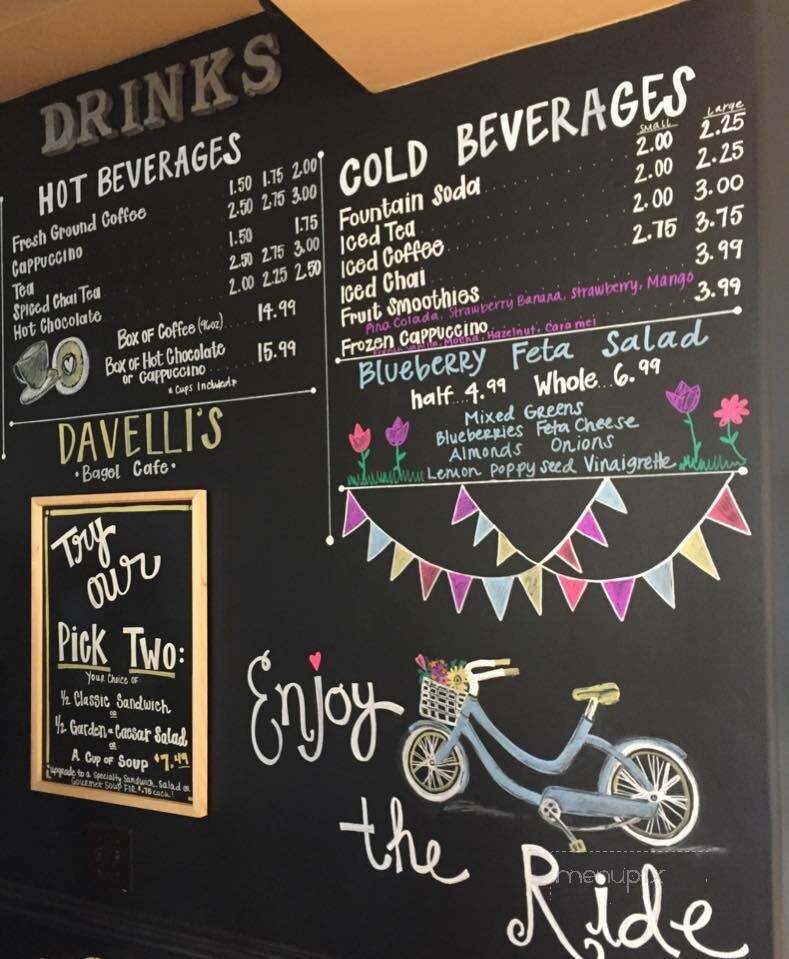 DRINKS
HOT BEVERAGES
Fresh Ground Coffee 1.50 1.75 2.00
Cappuccino 2.50 2.75 3.00
Tea 1.50 1.75
Spiced Chai Tea 2.50 2.75 3.00
Hot Chocolate 2.00 2.25 2.50
Box of Coffee (96oz) 14.99
Box of Hot Chocolate
or Cappuccino 15.99
*Cups Included*
DAVELLI'S
Bagel Cafe
COLD BEVERAGES
small Large
Fountain Soda 2.00 2.25
Iced Tea 2.00 2.25
Iced Coffee 2.00 3.00
Iced Chai 2.75 3.75
Fruit Smoothies 3.99
Pina Colada, Strawberry Banana, Strawberry, Mango
Frozen Cappuccino 3.99
Mocha, Hazelnut, Caramel
Blueberry Feta Salad
half...4.99 Whole...6.99
Mixed Greens
Blueberries Feta Cheese
Almonds Onions
Lemon poppy seed Vinaigrette
Try
our
Pick Two:
Your Choice of
1/2 Classic Sandwich
or
1/2 Garden or Caesar Salad
or
A Cup of Soup $7.49
*upgrade to a Specialty Sandwich, Salad or
Gourmet Soup For $.75 each!
Enjoy
the
Ride
menupix